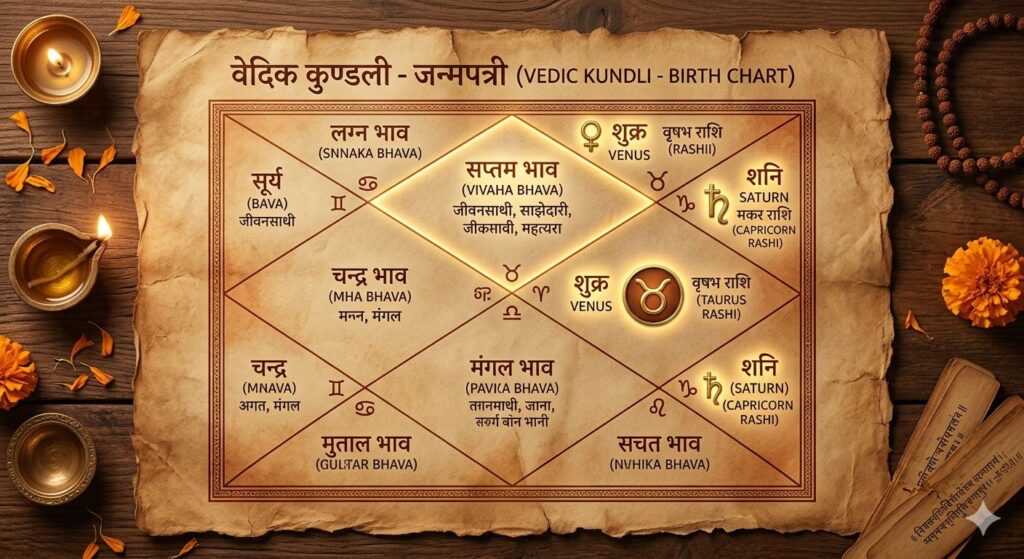 वेदिक कुण्डली - जन्मपत्री (VEDIC KUNDLI - BIRTH CHART)
लग्न भाव
(SNNAKA BHAVA)
सूर्य
(BAVA)
जीवनसाथी
सप्तम भाव
(VIVAHA BHAVA)
जीवनसाथी, साझेदारी,
जीकमावी, महत्यरा
शुक्र
VENUS
वृषभ राशि
(RASHII)
शनि
SATURN
मकर राशि
(CAPRICORN
RASHI)
चन्द्र भाव
(MHA BHAVA)
मन्न, मंगल
शुक्र
VENUS
वृषभ राशि
(TAURUS
RASHI)
चन्द्र
(MNAVA)
अगत, मंगल
मंगल भाव
(PAVIKA BHAVA)
जाना,
बोन भानी
शनि
(SATURN)
(CAPRICORN
RASHI)
मुताल भाव
(GULTAR BHAVA)
सचत भाव
(NVHIKA BHAVA)